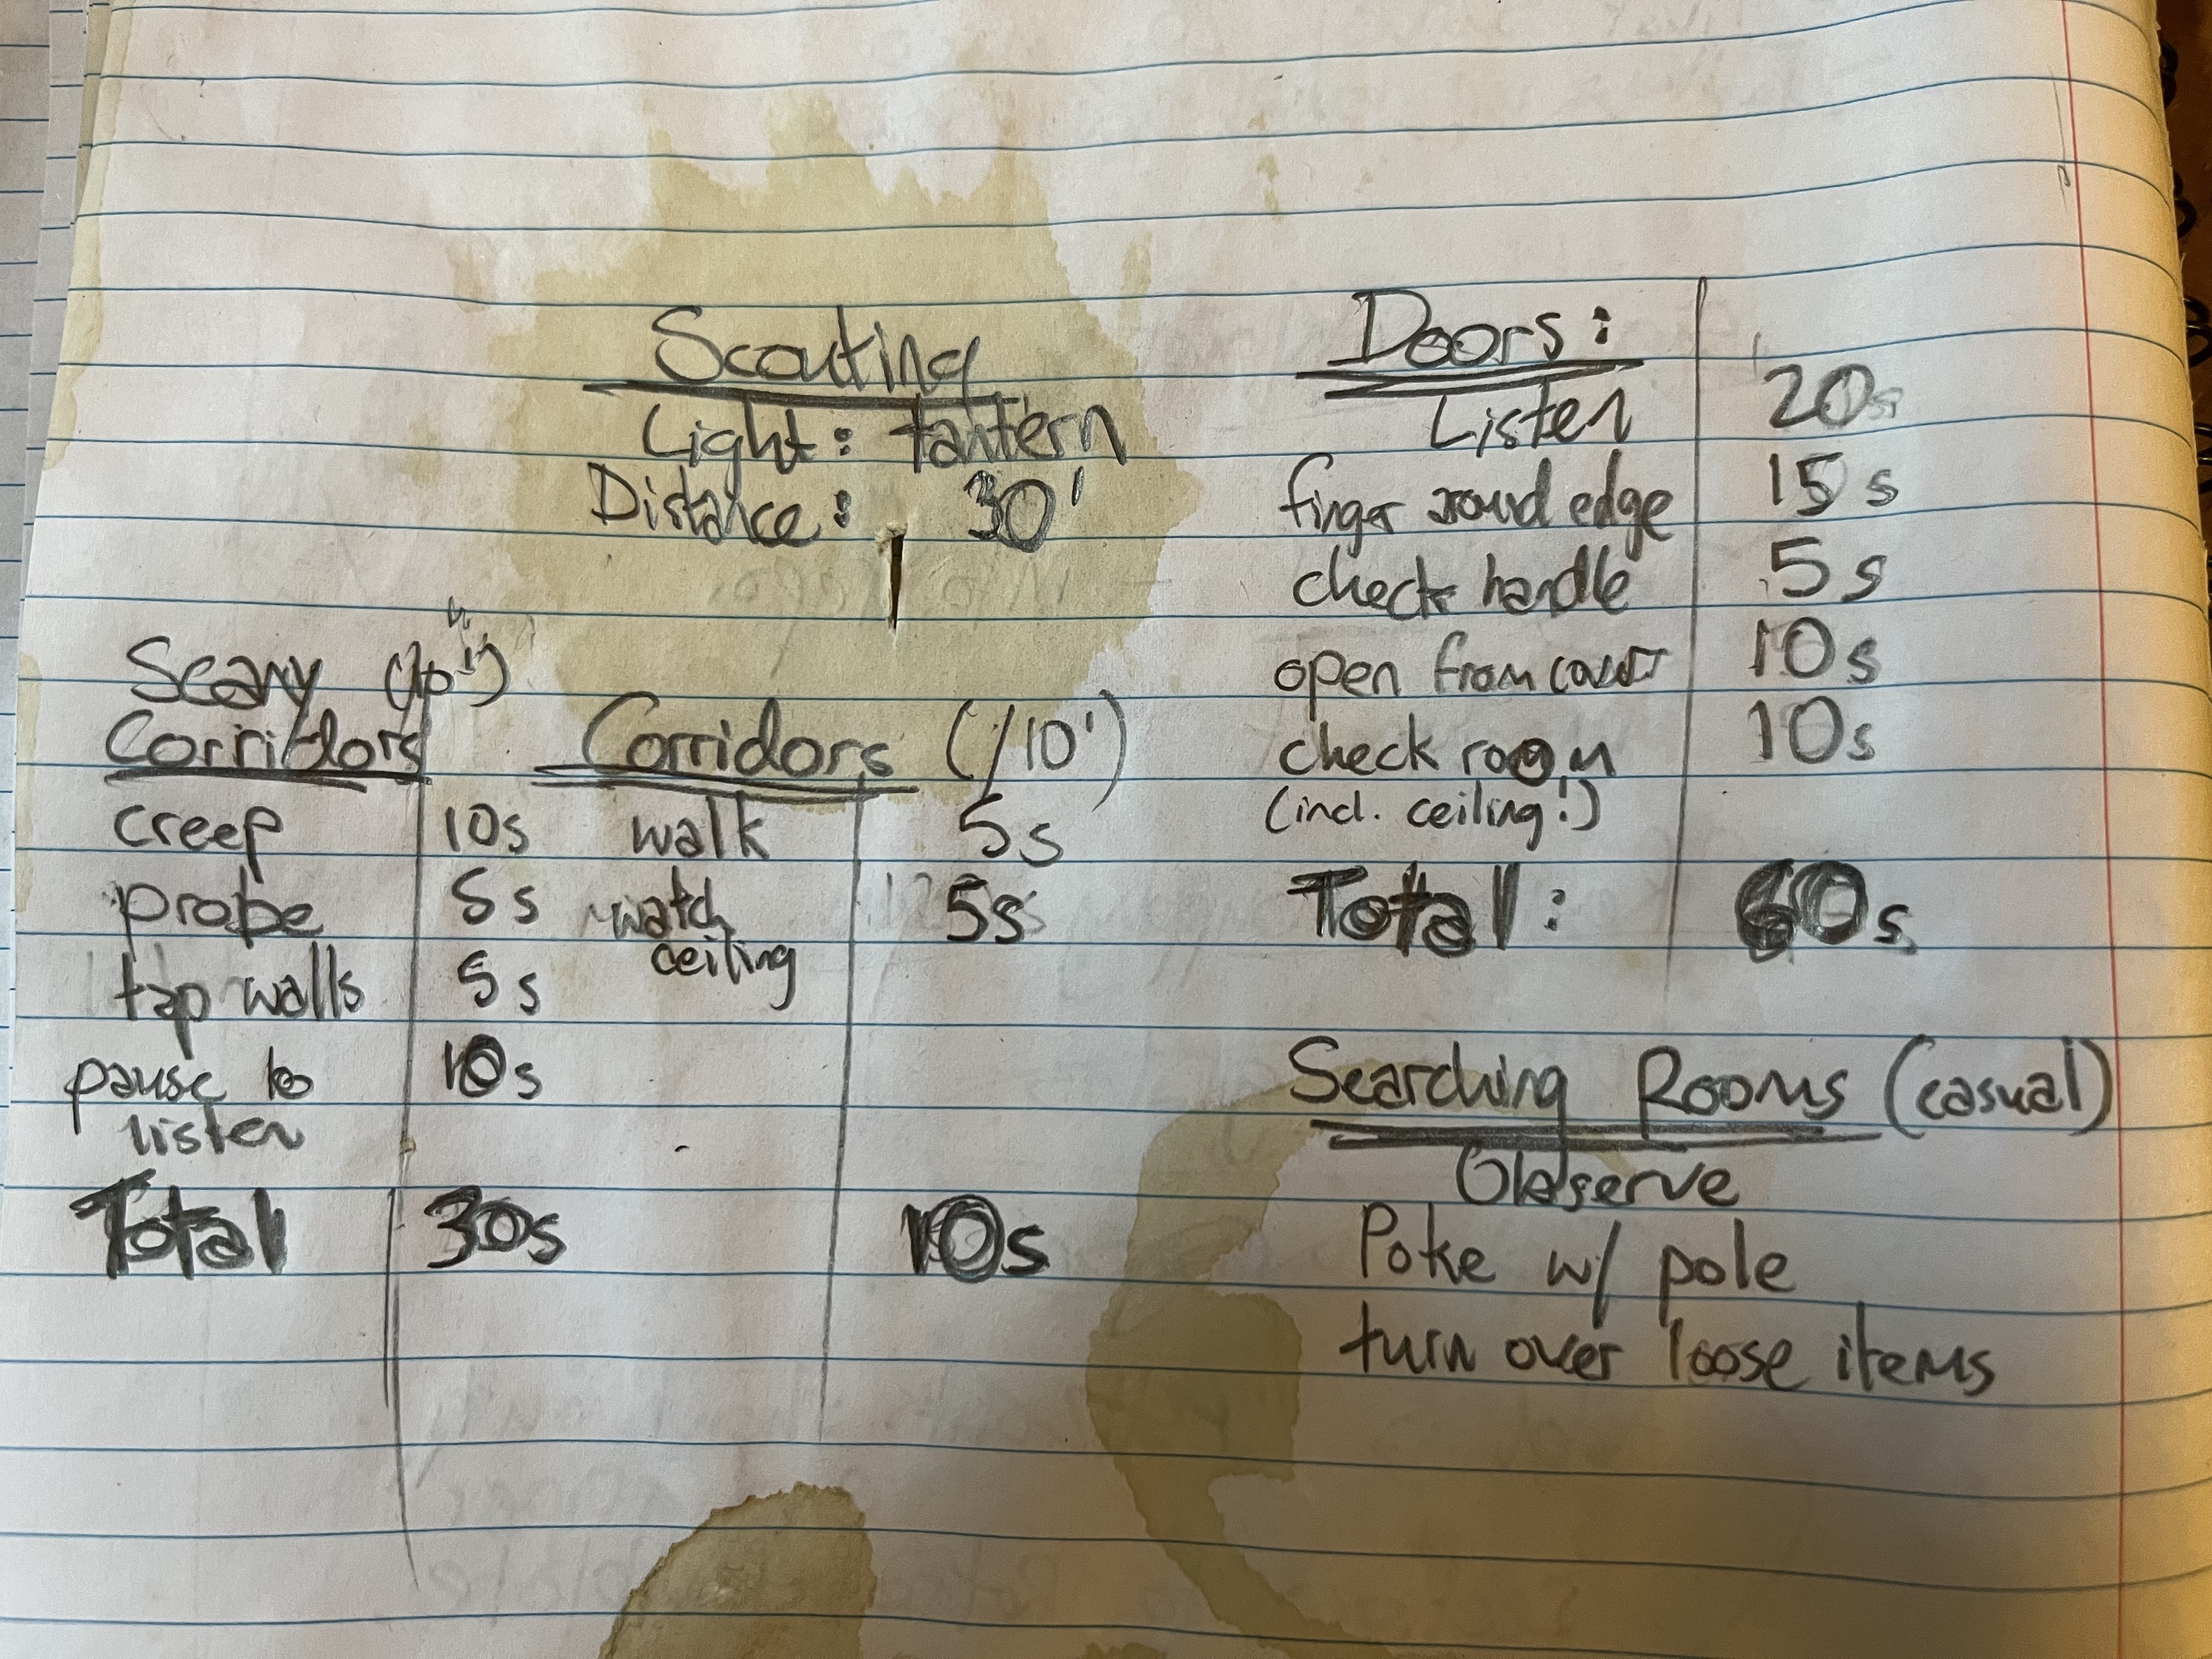 Scouting
Light: lantern
Distance: 30'
Scary (10')
Corridors
creep 10s
probe 5s
tap walls 5s
pause to 10s
listen
Total 30s
Corridors (/10')
walk 5s
watch 5s
ceiling
10s
Doors:
Listen 20s
finger around edge 15s
check handle 5s
open from cover 10s
check room 10s
(incl. ceiling!)
Total: 60s
Searching Rooms (casual)
Observe
Poke w/ pole
turn over loose items